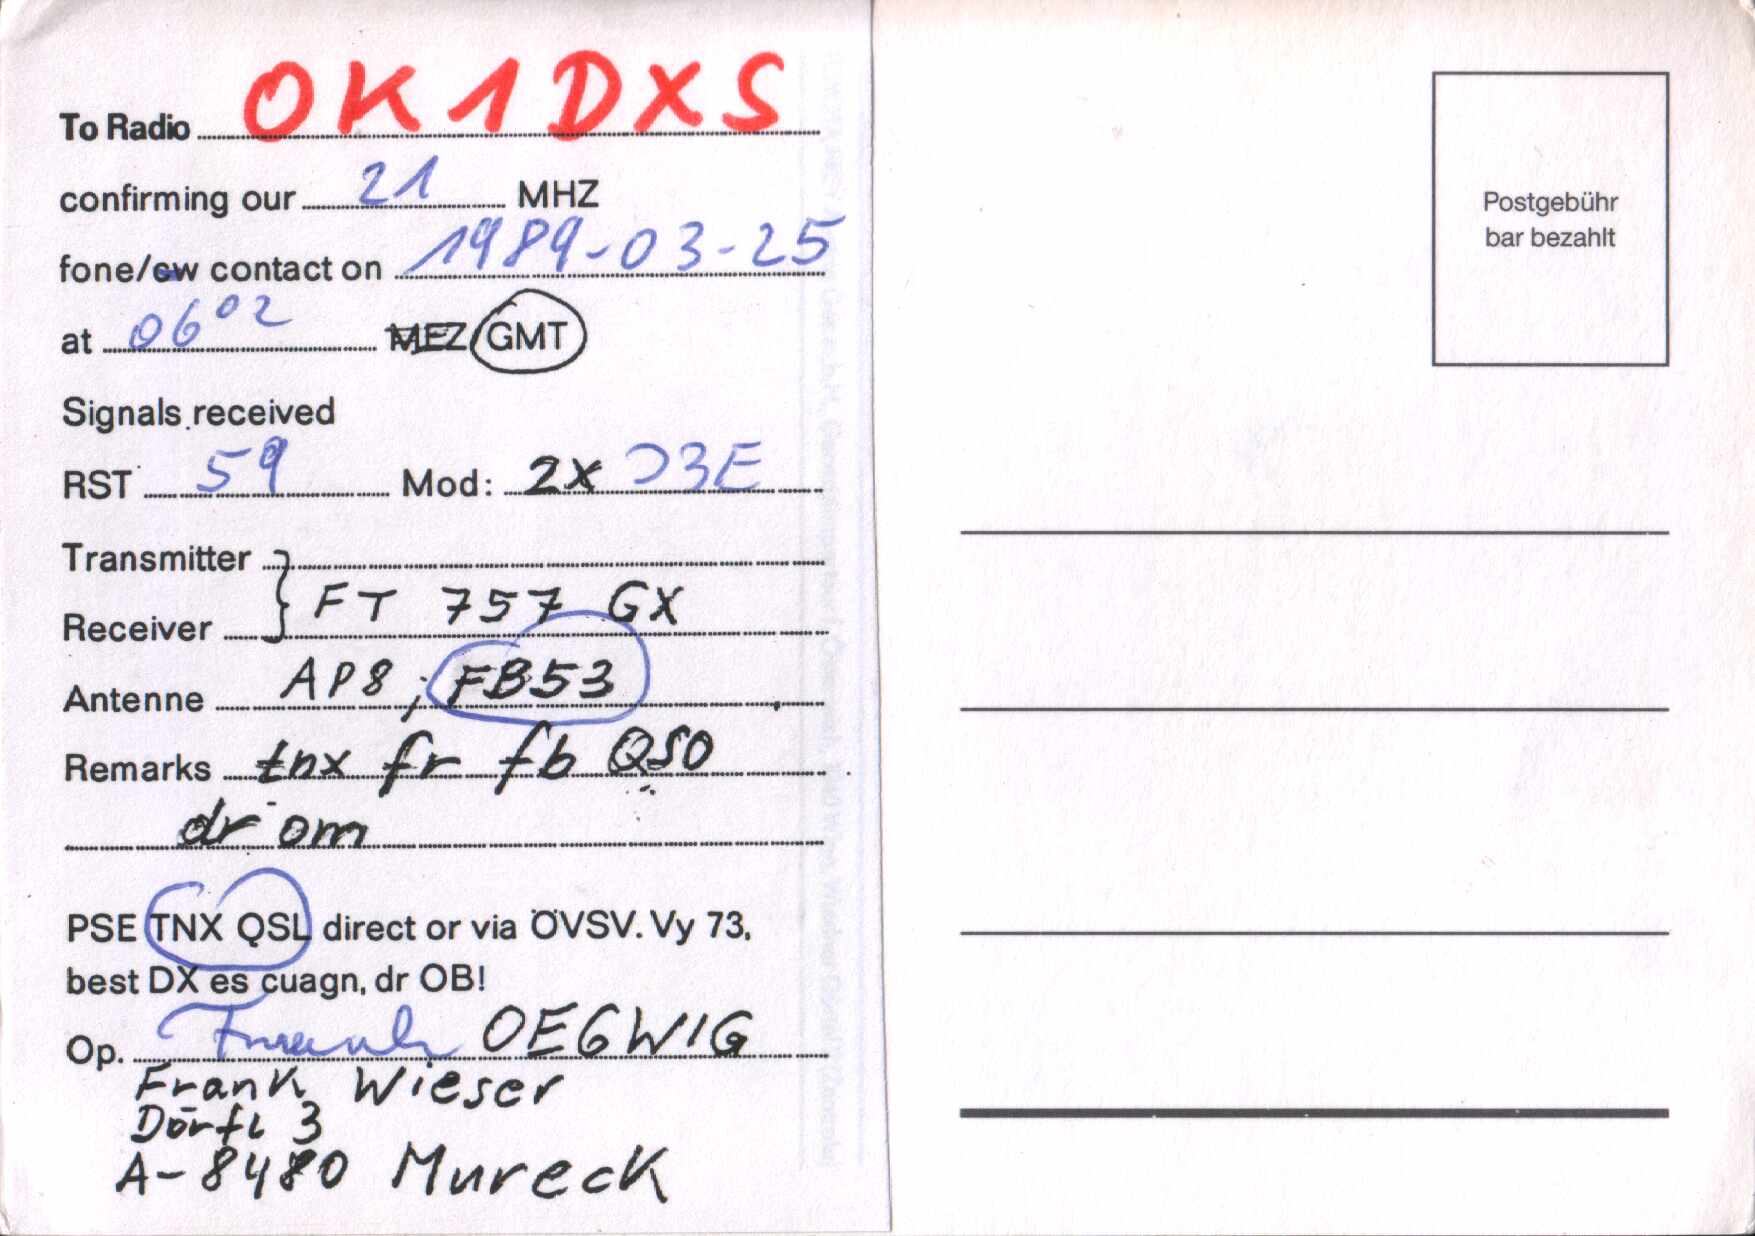 To Radio OK1DXS
confirming our 21 MHZ
fone/cw contact on 1989-03-25
at 0602 MEZ/GMT
Signals received
RST 59 Mod: 2x J3E
Transmitter
Receiver FT 757 GX
Antenne AP8; FB53
Remarks tnx fr fb QSO
dr om
PSE TNX QSL direct or via ÖVSV. Vy 73,
best DX es cuagn, dr OB!
Op. Frank OE6WIG
Frank Wieser
Dörfl 3
A-8480 Mureck
Postgebühr
bar bezahlt